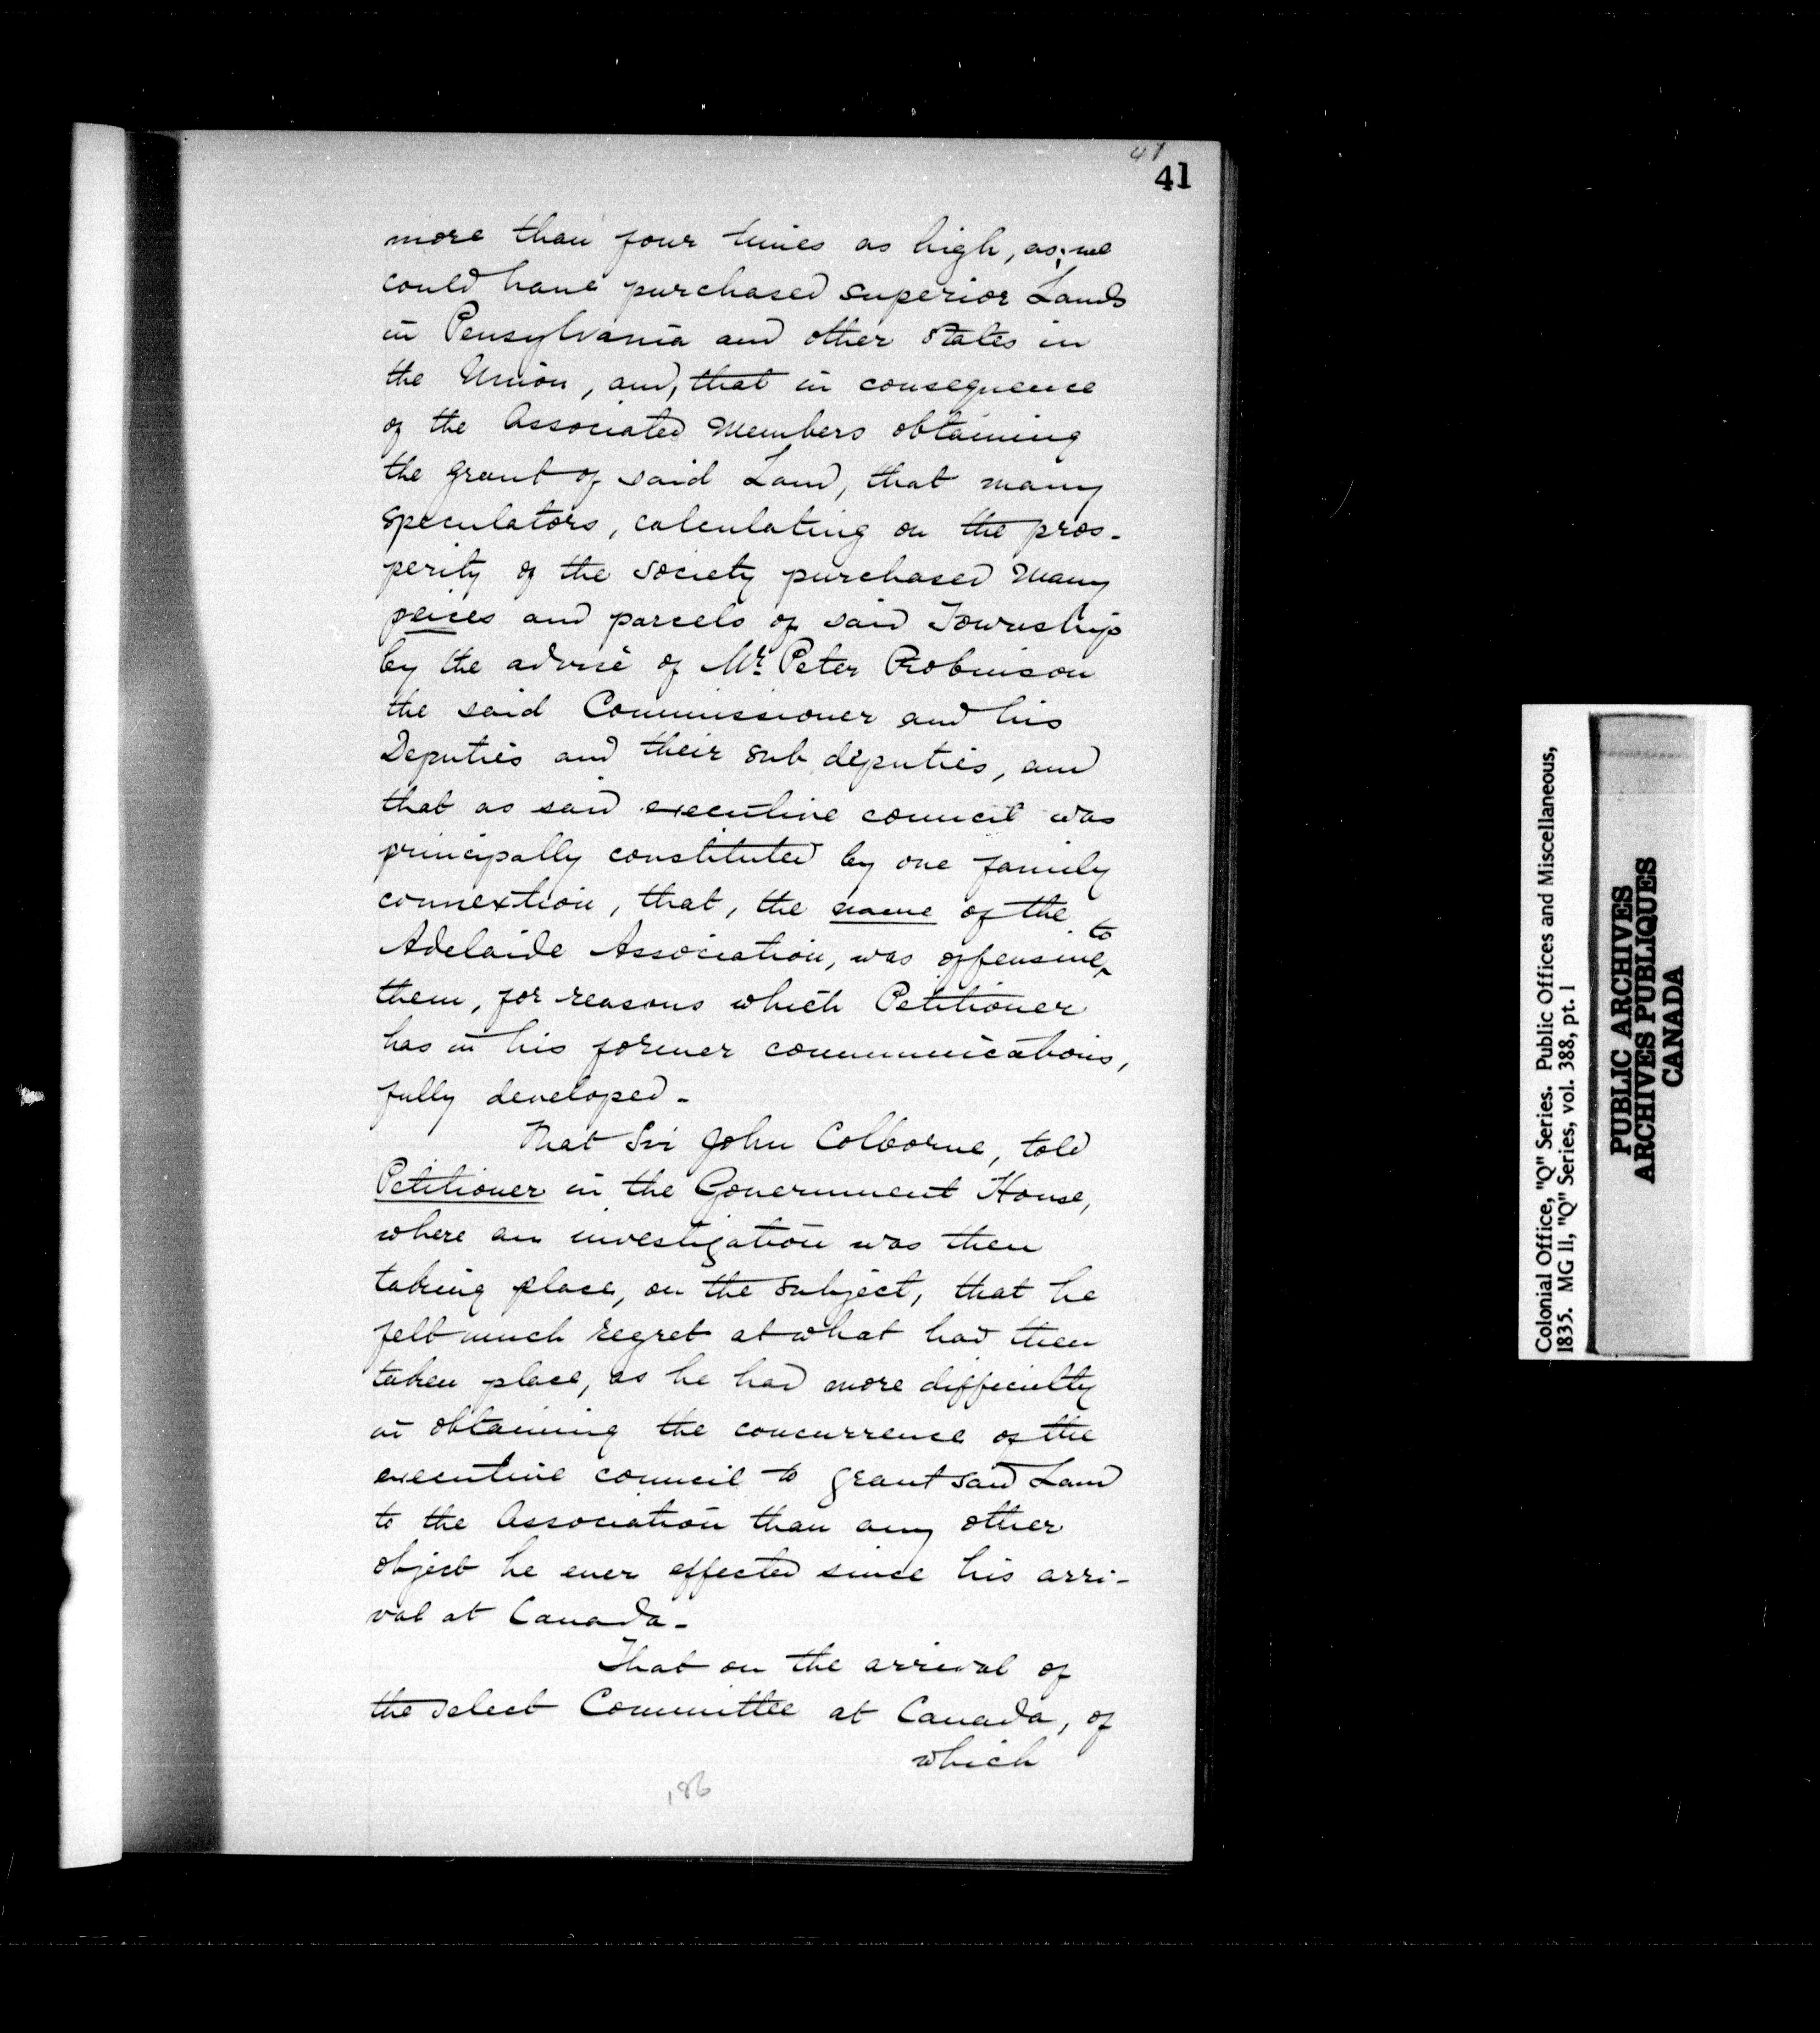 41
41
more than four times as high, as, we
could have purchased superior Lands
in Pensylvania and other States in
the Union, and, that in consequence
of the Associated Members obtaining
the grant of said Land, that many
speculators, calculating on the pros-
perity of the society purchased many
peices and parcels of said Township
by the advise of Mr. Peter Robinson
the said Commissioner and his
Deputies and their sub deputies, and
that as said executive council was
principally constituted by one family
connextion, that, the name of the
Adelaide Association, was offensive to
them, for reasons which Petitioner
has in his former communications,
fully developed.-
That Sir John Colborne, told
Petitioner in the Government House,
where an investigation was then
taking place, on the subject, that he
felt much regret at what had then
taken place, as he had more difficulty
in obtaining the concurrence of the
executive council to grant said Land
to the Association than any other
object he ever effected since his arri-
val at Canada.-
That on the arrival of
the select Committee at Canada, of
which
186
Colonial Office, "Q" Series. Public Offices and Miscellaneous,
1835. MG 11, "Q" Series, vol. 388, pt. 1
PUBLIC ARCHIVES
ARCHIVES PUBLIQUES
CANADA